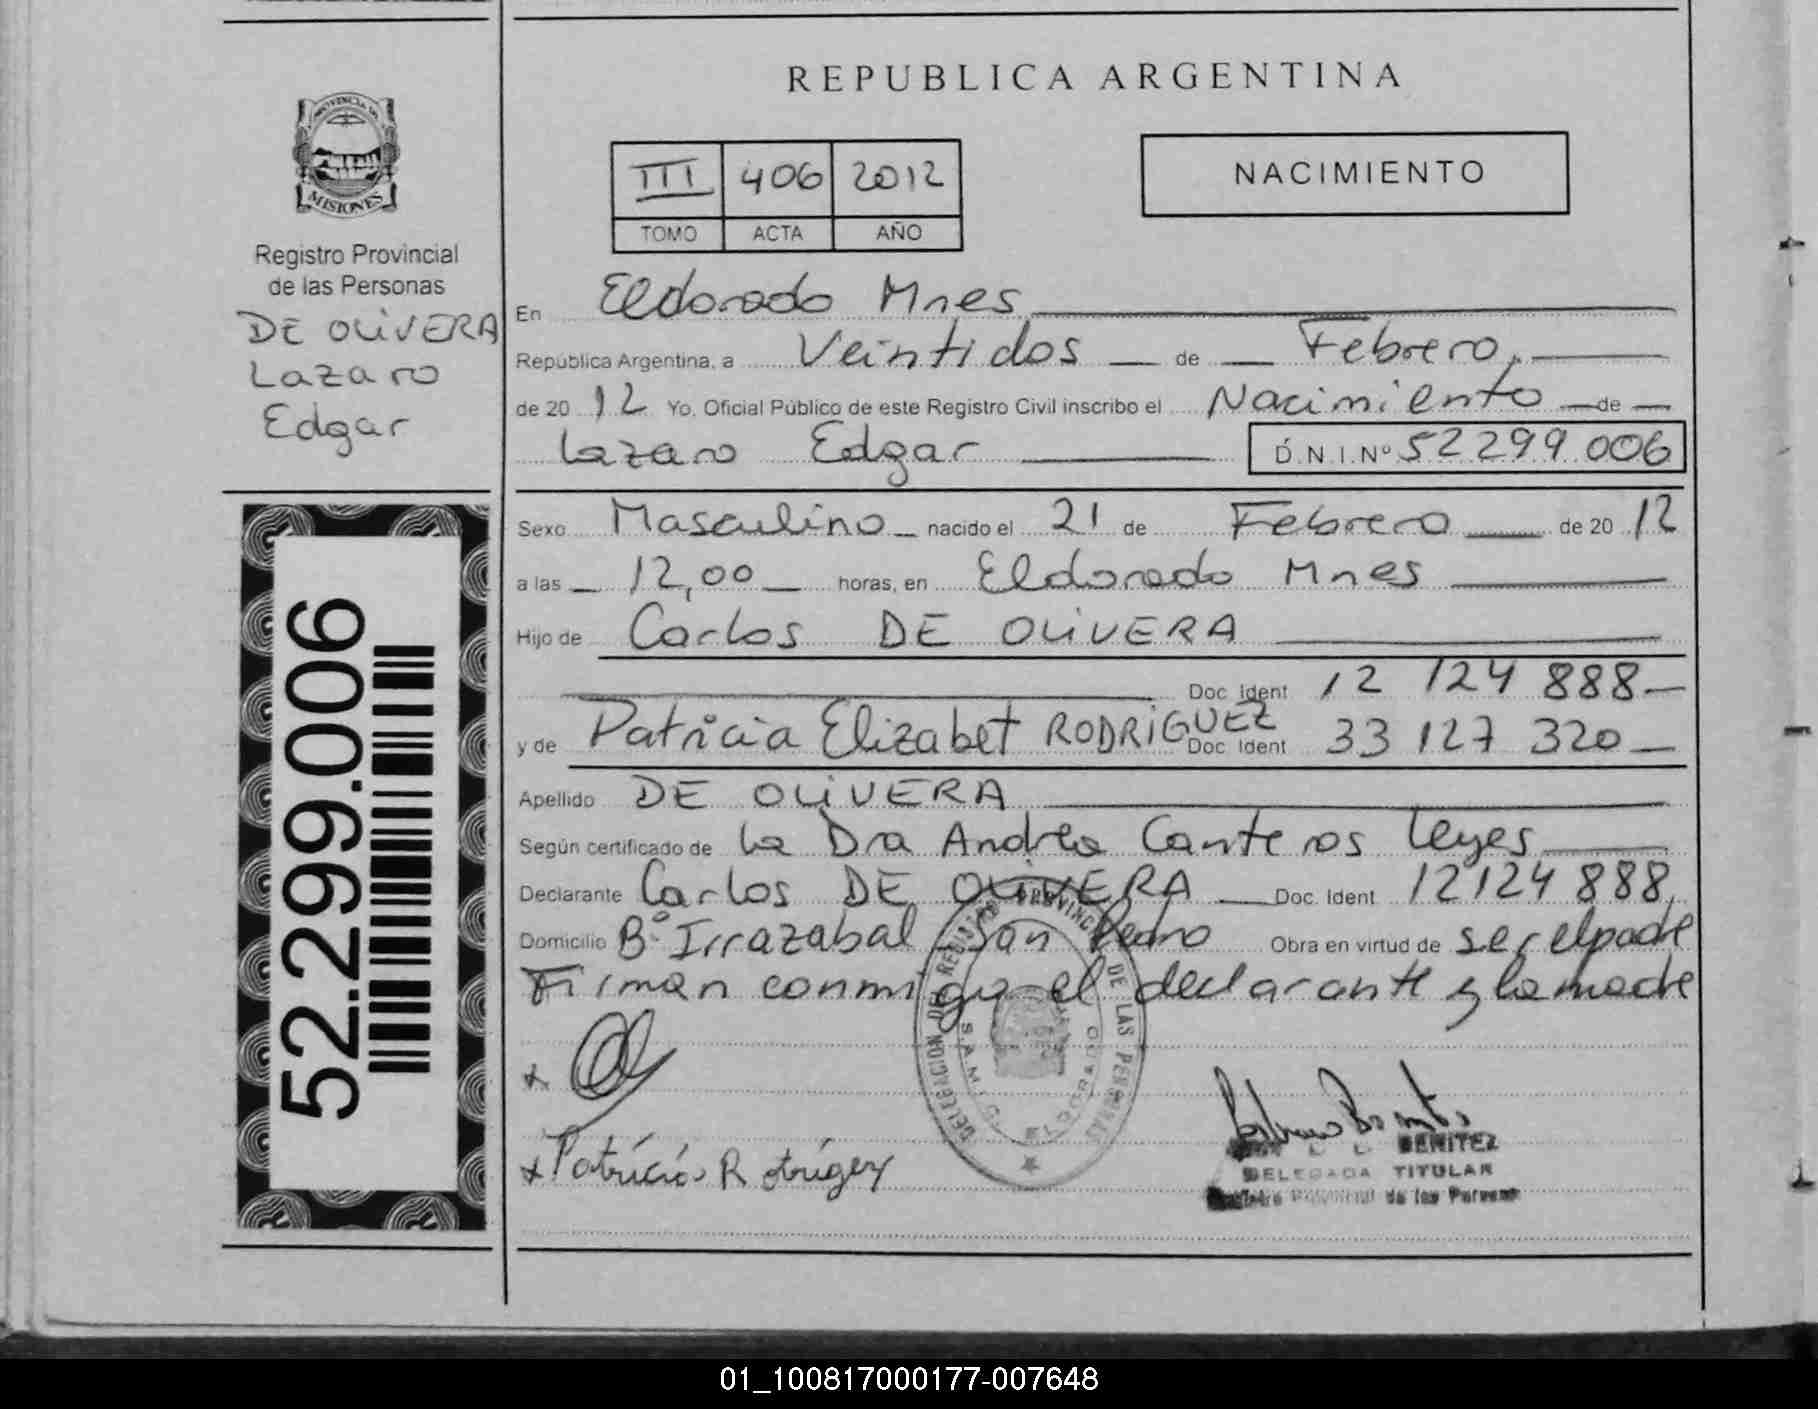 REPUBLICA ARGENTINA
PROVINCIA DE
MISIONES
Registro Provincial
de las Personas
DE OLIVERA
Lazaro
Edgar
52.299.006
III 406 2012
TOMO ACTA AÑO
NACIMIENTO
En Eldorado Mnes
República Argentina, a Veintidos de Febrero,
de 20 12 Yo, Oficial Público de este Registro Civil inscribo el Nacimiento de
Lazaro Edgar D.N.I.Nº 52299006
Sexo Masculino nacido el 21 de Febrero de 20 12
a las 12,00 horas, en Eldorado Mnes
Hijo de Carlos DE OLIVERA
Doc. Ident 12 124 888
y de Patricia Elizabet RODRIGUEZ Doc. Ident 33 127 320
Apellido DE OLIVERA
Según certificado de La Dra Andrea Canteros Leyes
Declarante Carlos DE OLIVERA Doc. Ident 12124888,
Domicilio Bº Irrazabal San Pedro Obra en virtud de ser el padre
Firman conmigo el declarante y la madre
DELEGACION DE REGISTRO PROVINCIAL DE LAS PERSONAS
ELDORADO
x
x Patricia Rotrigez
BENITEZ
DELEGADA TITULAR
Registro Provincial de las Personas
01_100817000177-007648